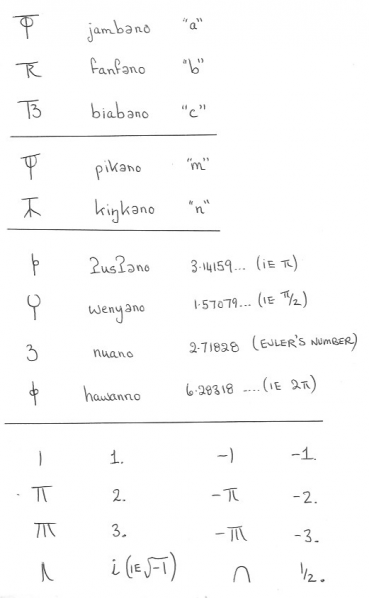 jambano "a"
fanfano "b"
biabano "c"
pikano "m"
kiŋkano "n"
ʔusʔano 3.14159... (iE π)
wenyano 1.57079... (iE π/2)
3 nuano 2.71828 (EULER'S NUMBER)
hawanno 6.28318 .... (iE 2π)
1 1. -1 -1.
2. -2.
3. -3.
i (iE √-1) ∩ 1/2.